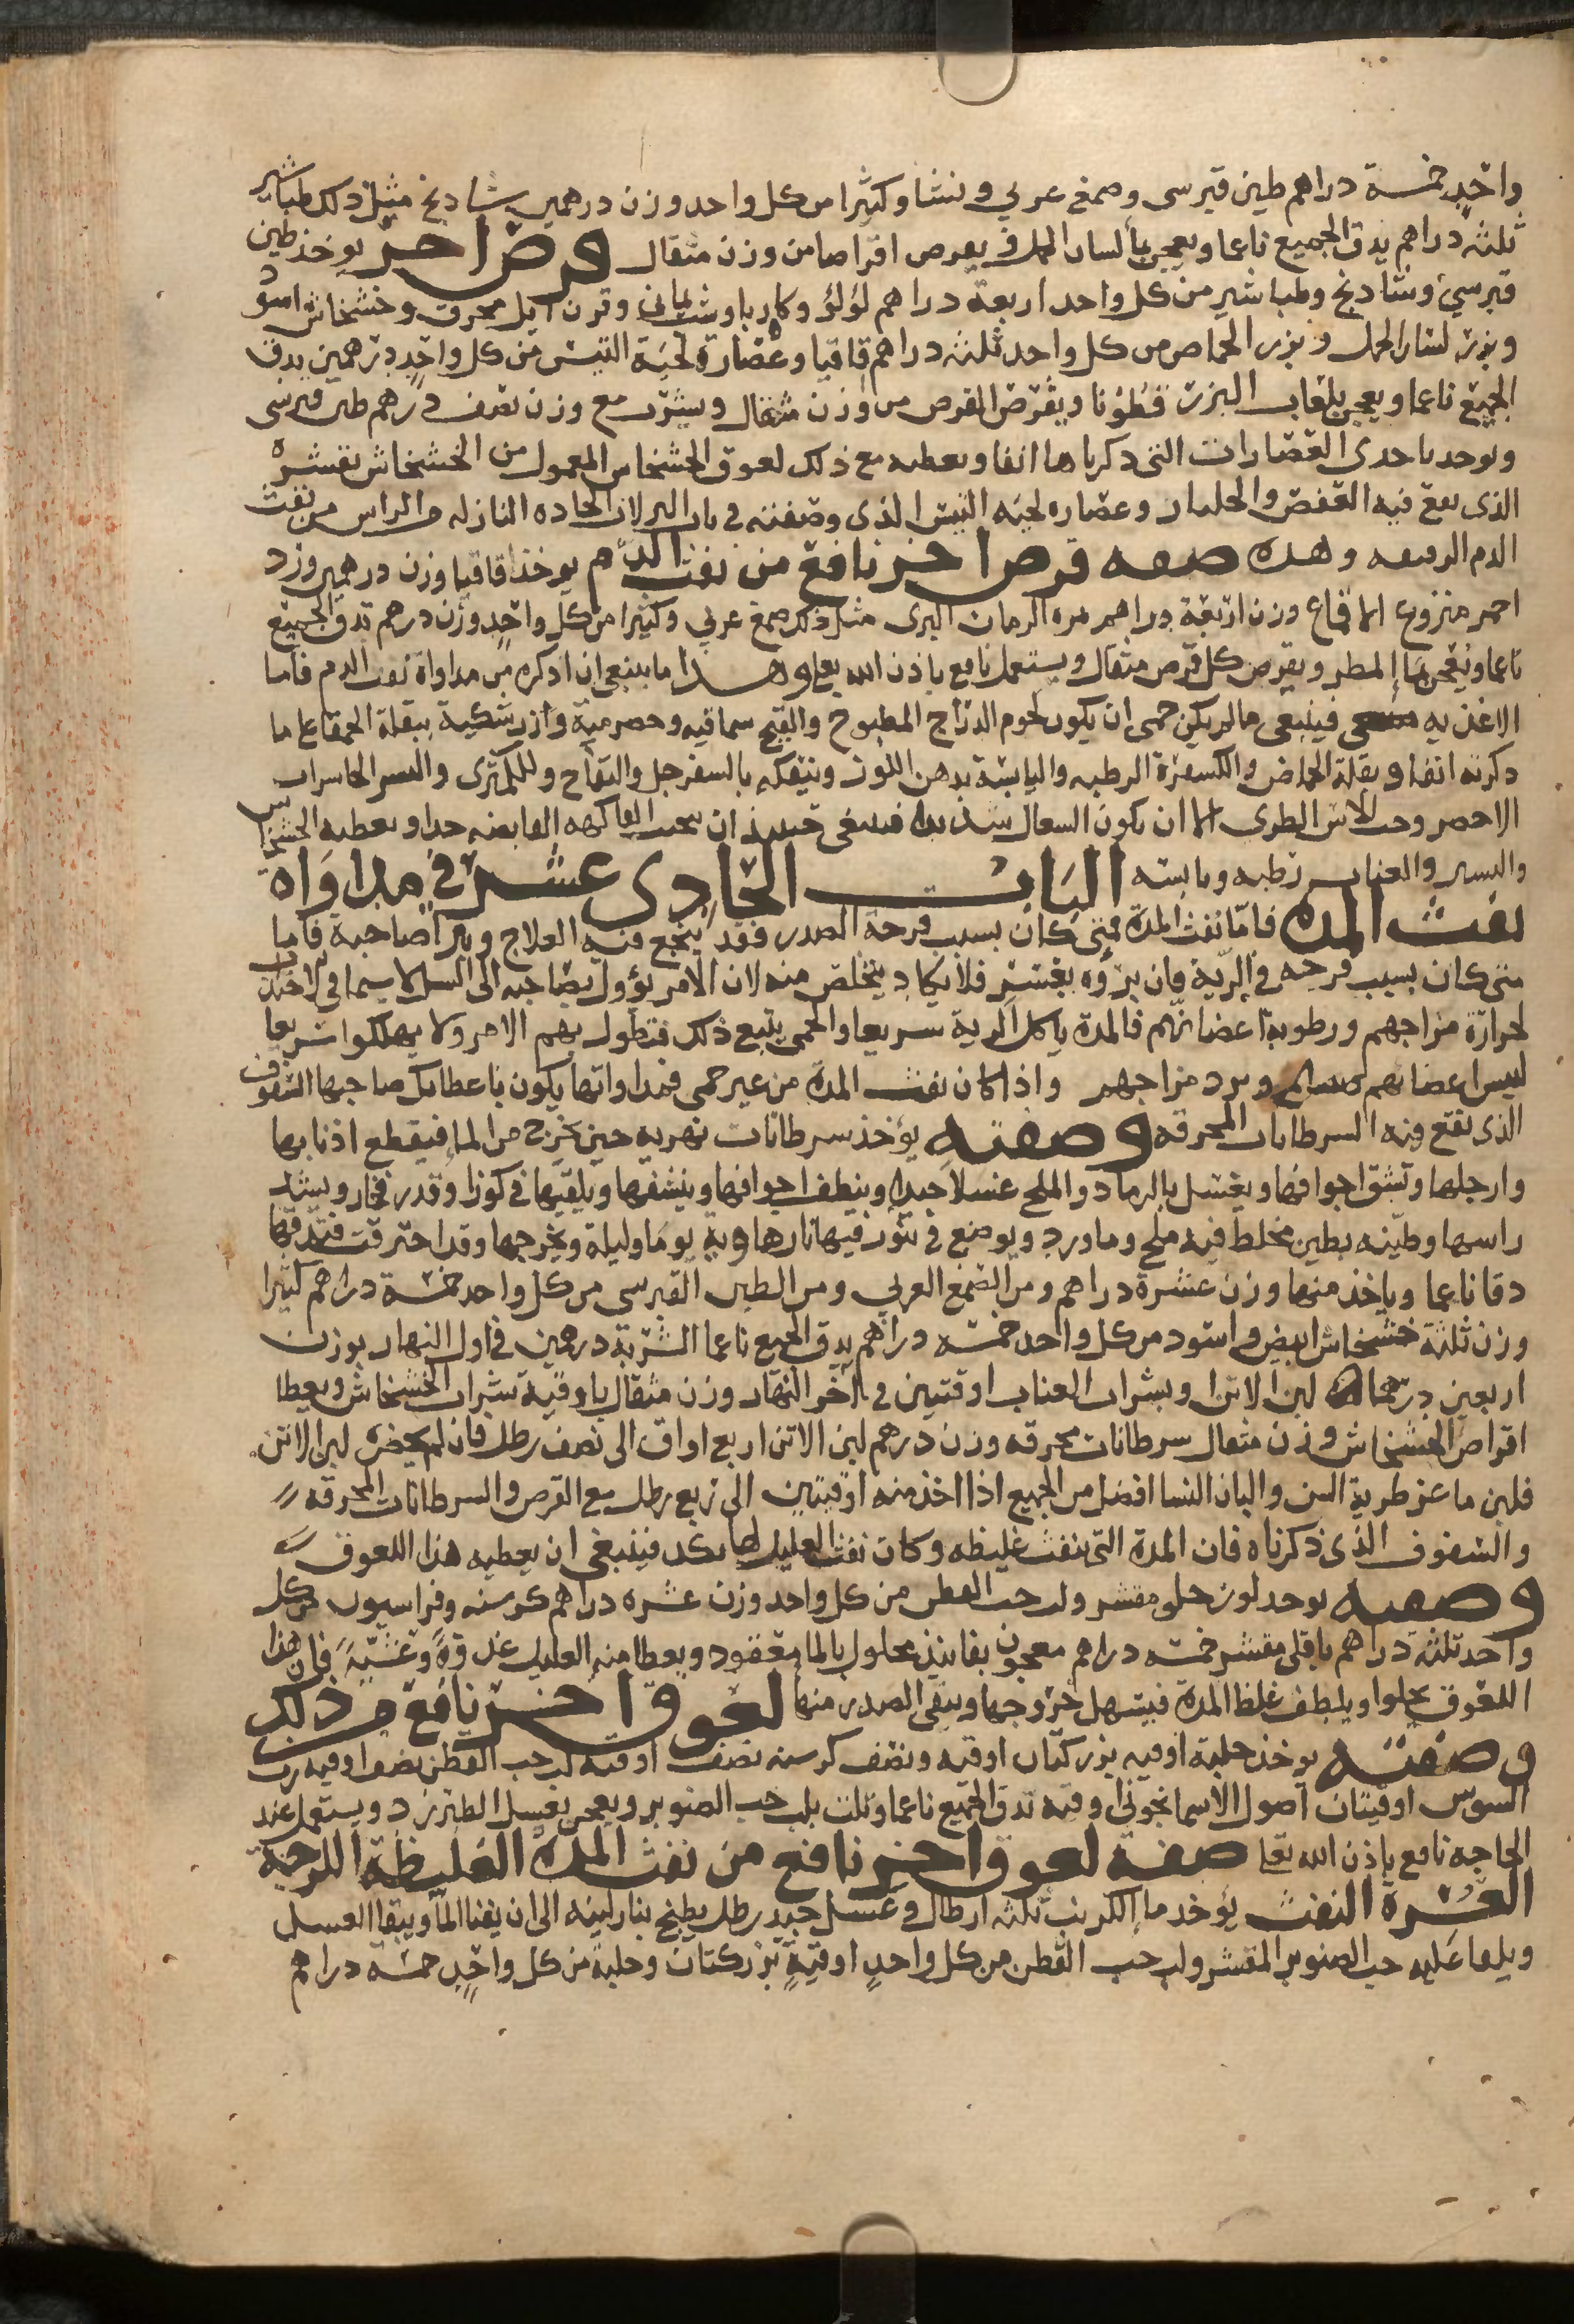 واحد خمسة دراهم طين قبرسى وصمغ عربي ونشا وكثيرا من كل واحد وزن درهمين شادنج مثل ذلك طباشير
ثلثه دراهم يدق الجميع ناعما ويعجن بما لسان الحمل ويقرص اقراصا من وزن مثقال قرص اخر يوخذ طين
قبرسي وشادنج وطباشير من كل واحد اربعة دراهم لؤلؤ وكاربا وشب يماني وقرن ايل محرق وخشخاش اسود
وبزر لسان الحمل وبزر الحماض من كل واحد ثلثه دراهم قاقيا وعصارة لحية التيس من كل واحد درهمين يدق
الجميع ناعما ويعجن بلعاب البزر قطونا ويقرص القرص من وزن مثقال ويشرب مع وزن نصف درهم طين قبرسى
ويوخذ باحدى العصارات التى ذكرناها انفا ويعطيه مع ذلك لعوق الخشخاش المعمول من الخشخاش بقشره
الذى يقع فيه العفص والجلنار وعصاره لحيه التيس الذى وصفته في باب النزلات الحاده النازله من الراس من نفث
الدم الرقيقه وهذه صفه قرص اخر نافع من نفث الدم يوخذ اقاقيا وزن درهمين ورد
احمر منزوع الاقماع وزن اربعة دراهم ثمره الرمان البرى مثل ذلك صمغ عربي وكثيرا من كل واحد وزن درهم تدق الجميع
ناعما ويعجن بما المطر ويقرص كل قرص مثقال ويستعمل نافع باذن الله تعالى وهذا ما ينبغي ان اذكره من مداواة نفث الدم فاما
الاغذيه فينبغى مالم يكن حمى ان يكون لحوم الدراج المطبوخ والقبج سماقيه وحصرمية وازرشكية ببقلة الحمقا على ما
ذكرته انفا وبقلة الحماض والكسفرة الرطبه واليابسة بدهن اللوز ويتفكه بالسفرجل والتفاح والكمثرى والبسر
الاخضر وحب الاس الطرى اما ان يكون السعال شديدا فينبغى حينيذ ان يجنب الفاكهه القابضه جدا ويعطيه الخشخاش
والبسر والعناب رطبه ويابسه الباب الحادى عشر في مداواة
نفث المدة فاما نفث المدة فمتى كان بسبب قرحة الصدر فقد ينجع فيه العلاج ويبرا صاحبه فاما
متى كان بسبب قرحه في الرية فان برؤه يعسر فلا يكاد يتخلص منه لان الامر يؤول بصاحبه الى السل لا سيما في
لحرارة مزاجهم ورطوبة اعضائهم فالمدة ياكل الرية سريعا والحمى يتبع ذلك فتطول بهم الامر ولا يهلكوا سريعا
ليبس اعضايهم وبرد مزاجهم واذا كان نفث المدة من غير حمى فمداواتها يكون باعطايك صاحبها السفوف
الذى يقع فيه السرطانات المحرقه وصفته يؤخذ سرطانات نهريه حين تخرج من الما فيقطع اذنابها
وارجلها وتشق اجوافها ويغسل بالرماد والملح غسلا جيدا وينظف اجوافها وينشفها ويلقيها في كوز او قدر فخار ويشد
راسها وطينه بطين مخلط فيه ملح وماورد ويوضع في تنور فيها نارها وية يوما وليلة ويخرجها وقد احترقت فتدقها
دقا ناعما وياخذ منها وزن عشرة دراهم ومن الصمغ العربي ومن الطين القبرسى من كل واحد خمسة دراهم كثيرا
وزن ثلثة خشخاش ابيض واسود من كل واحد خمسه دراهم يدق الجميع ناعما الشربة درهمين في اول النهار بوزن
اربعين درهما لبن الاتن او بشراب العناب اوقتيين وفي اخر النهار وزن مثقال باوقية شراب الخشخاش ويعطا
اقراص الخشخاش وزن مثقال سرطانات محرقه وزن درهم لبن الاتن اربع اواق الى نصف رطل فان لم يحضر لبن الاتن
فلبن ماعز طرية السن والبان النسا افضل من الجميع اذا اخذ منه اوقيتين الى ربع رطل مع القرص والسرطانات المحرقه
والسفوف الذى ذكرناه فان المدة التى تنفث غليظه وكان نفث العليل لها بكد فينبغى ان يعطيه هذا اللعوق
وصفته يوخذ لوز حلو مقشر ولب حب القطن من كل واحد وزن عشره دراهم كرسنه وفراسيون من كل
واحد ثلثه دراهم باقلى مقشر خمسه دراهم معجون بفانيذ محلول بالما معقود ويعطا منه العليل غدوة وعشية فان هذا
اللعوق يجلوا ويلطف غلظ المدة فيسهل خروجها وينقى الصدر منها لعوق اخر نافع من ذلك
وصفته يوخذ حلبة اوقيه بزر كتان اوقيه ونصف كرسنه نصف اوقيه لب حب القطن نصف اوقيه رب
السوس اوقيتان اصول الاسمانجوني اوقيه تدق الجميع ناعما وثلث بلب حب الصنوبر ويعجن بعسل الطبرزد ويستعمل عند
الحاجه نافع باذن الله تعالى صفه لعوق اخر نافع من نفث المدة الغليظة اللزجة
العسرة النفث يؤخد ما الكرنب ثلثه ارطال وعسل جيد رطل يطبخ بنار لينه الى ان يفنا الما ويبقا العسل
ويلقا عليه حب الصنوبر المقشر ولب حب القطن من كل واحد اوقية بزر كتان وحلبة من كل واحد خمسه دراهم